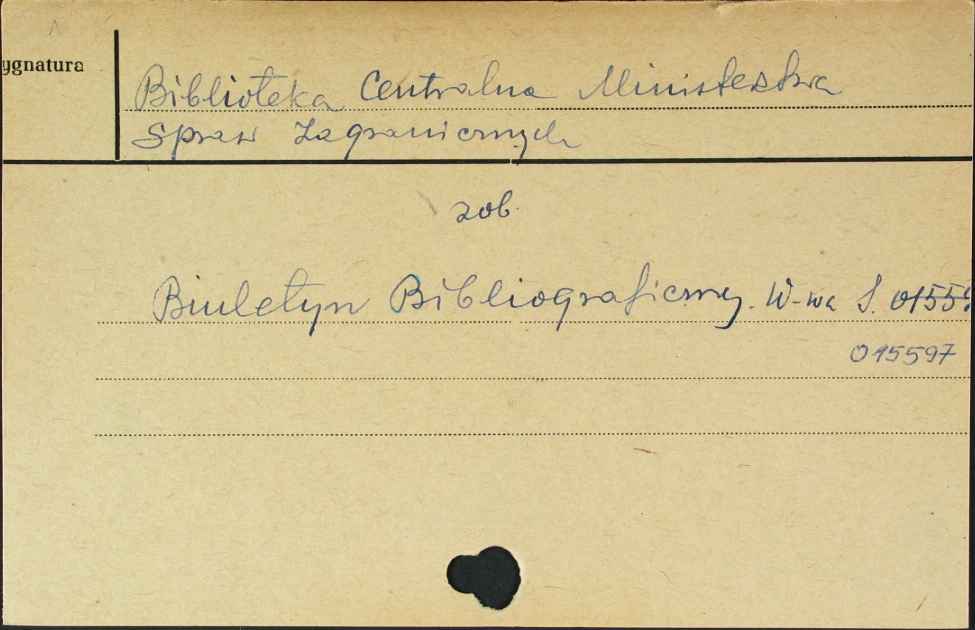 ygnatura
Biblioteka Centralna Ministerstwa
Spraw Zagranicznych
zob.
Biuletyn Bibliograficzny. W-wa S.
015597